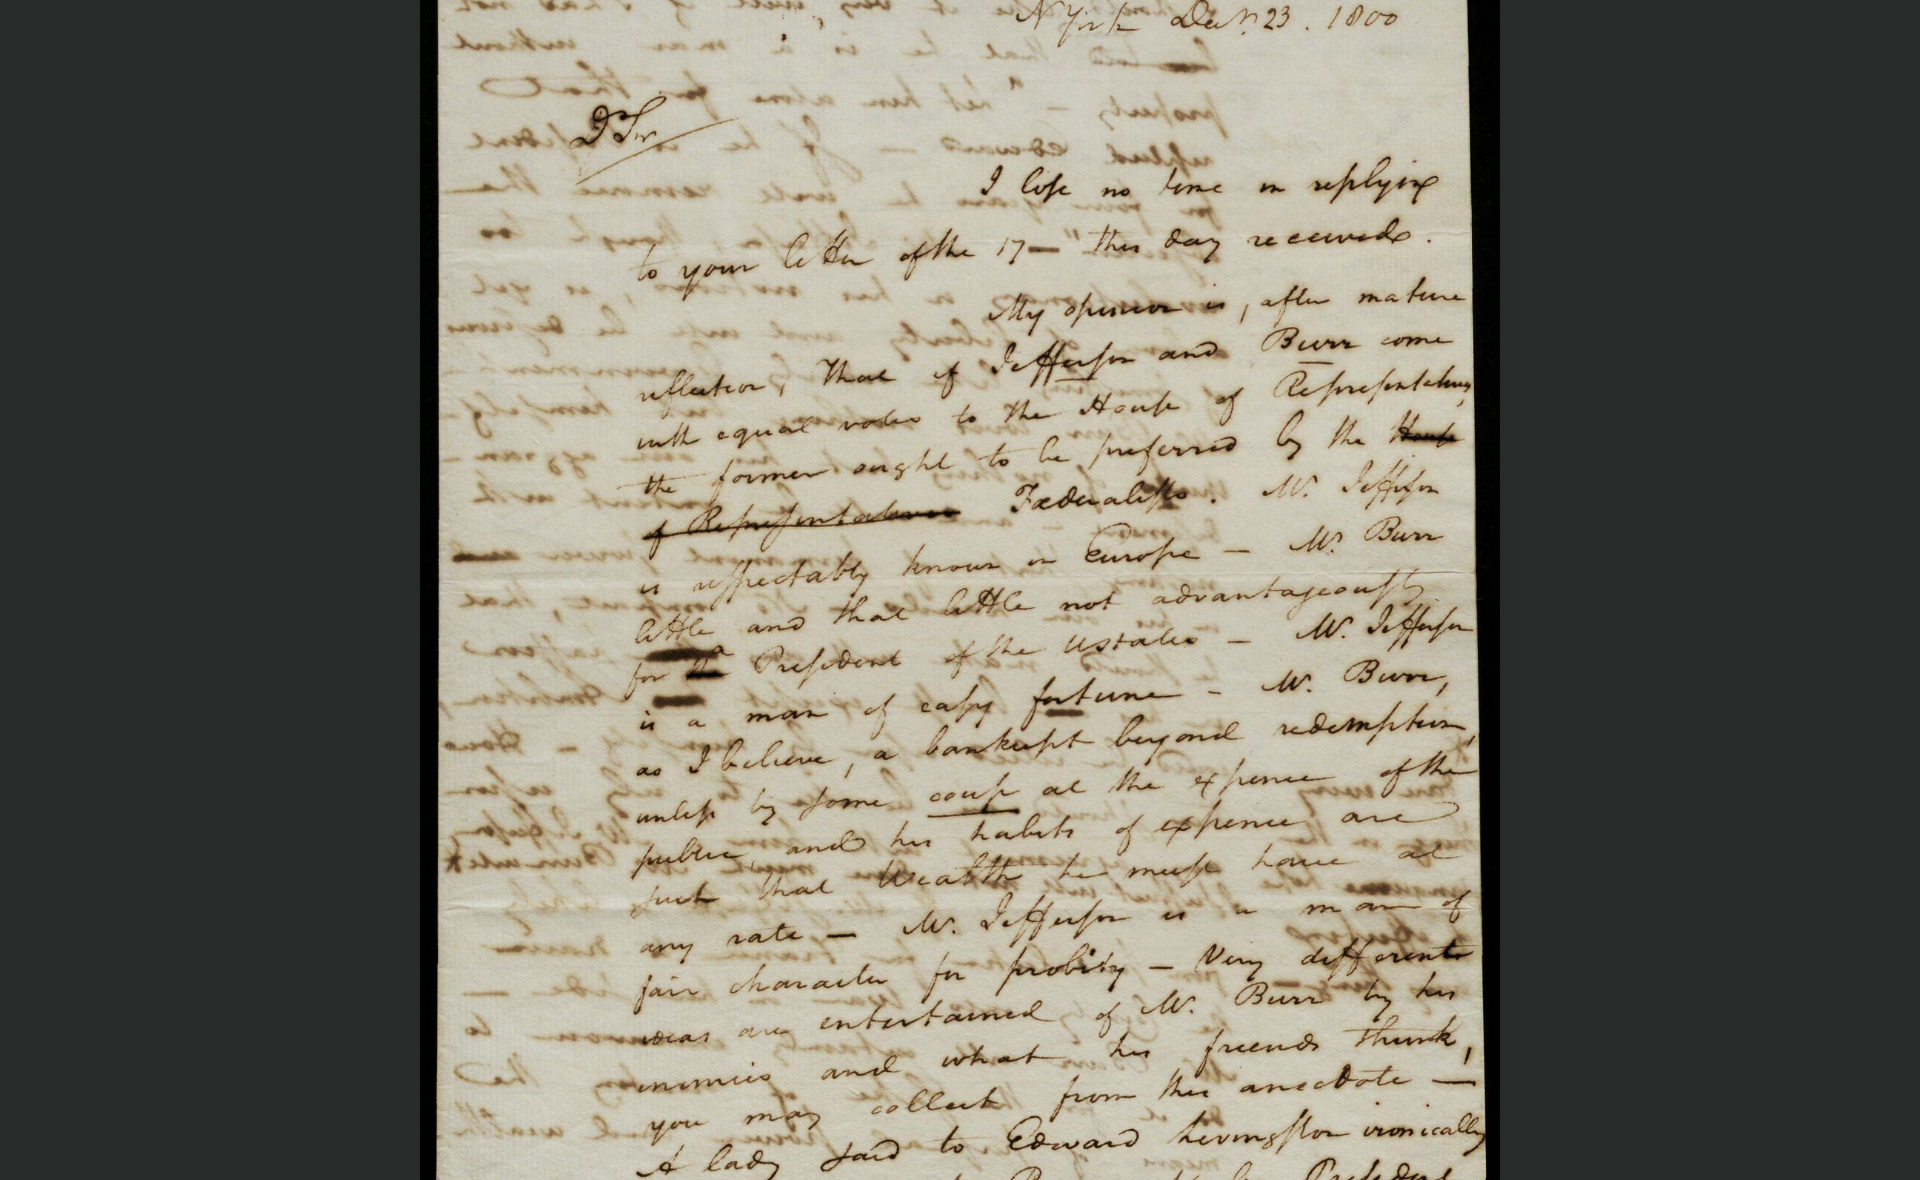 N York Decr. 23. 1800
D Sir
I lose no time in replying
to your letter of the 17— this day received.
My opinion is, after mature
reflection, that if Jefferson and Burr come
with equal votes to the House of Representatives,
the former ought to be preferred by the House
of Representatives Fæderalists. Mr. Jefferson
is respectably known in Europe — Mr. Burr
little and that little not advantageously
for the a President of the UStates — Mr. Jefferson
is a man of easy fortune — Mr. Burr,
as I believe, a bankrupt beyond redemption,
unless by some coup at the expence of the
public, and his habits of expence are
such that Wealth he must have at
any rate — Mr. Jefferson is a man of
fair character for probity — Very different
ideas are entertained of Mr. Burr by his
enemies and what his friends think,
you may collect from this anecdote —
A lady said to Edward Livingston ironically
President